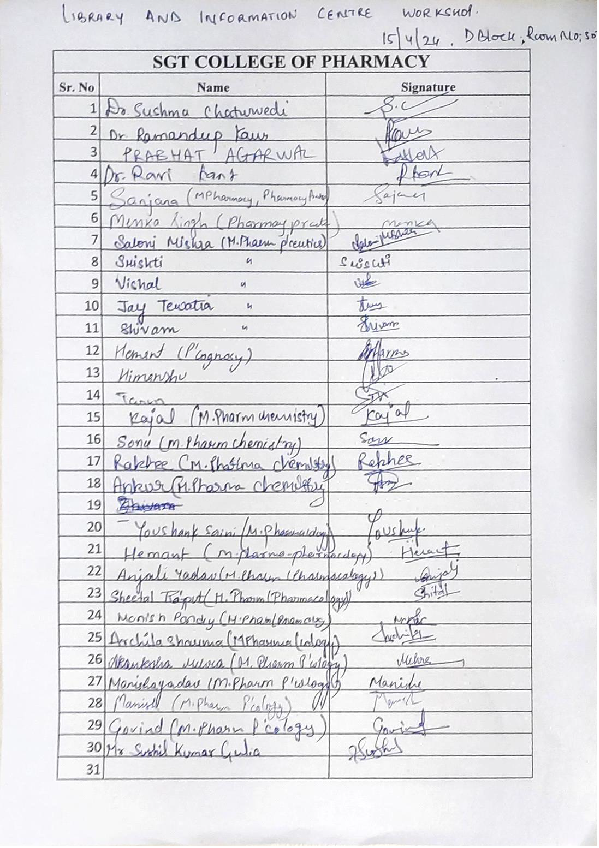 LIBRARY AND INFORMATION CENTRE WORKSHOP.
15/4/24. D Block, Room No, 50
SGT COLLEGE OF PHARMACY
Sr. No Name Signature
1 Dr Sushma Chaturvedi S.C
2 Dr. Ramandeep Kaur
3 PRABHAT AGARWAL
4 Dr. Ravi
5 Sanjana (MPharmacy, Pharmacy Sanjana
6 Menka Singh (Pharmacy menka
7 Saloni Mishra (M.Pharm p'ceutics)
8 Srishti "
9 Vishal "
10 Jay Tewatia "
11 Shivam " Shivam
12 Hemant (P'cognosy)
13 Himanshu
14 Tarun
15 Kajal (M.Pharm chemistry) Kajal
16 Sonu (M Pharm chemistry)
17 Rakhee (M.Pharma chemistry) Rakhee
18 Ankur (M.Pharma chemistry
19
20 Youshank Saini (M.Pharmacology) Youshank
21 Hemant (M.pharma-pharmacology) Hemant
22 Anjali Yadav (M.Pharm (Pharmacology)) Anjali
23 Sheetal Rajput (M.Pharm (Pharmacology)
24 Monish Pandey (M.Pharm
25 Archila Sharma (MPharma (cology)
26 (M. Pharm P'cology)
27 Manishayadav (M.Pharm P'cology) Manisha
28 (M.Pharm P'cology)
29 Govind (M.Pharm P'cology) Govind
30 Mr Sushil Kumar Gulia Sushil
31